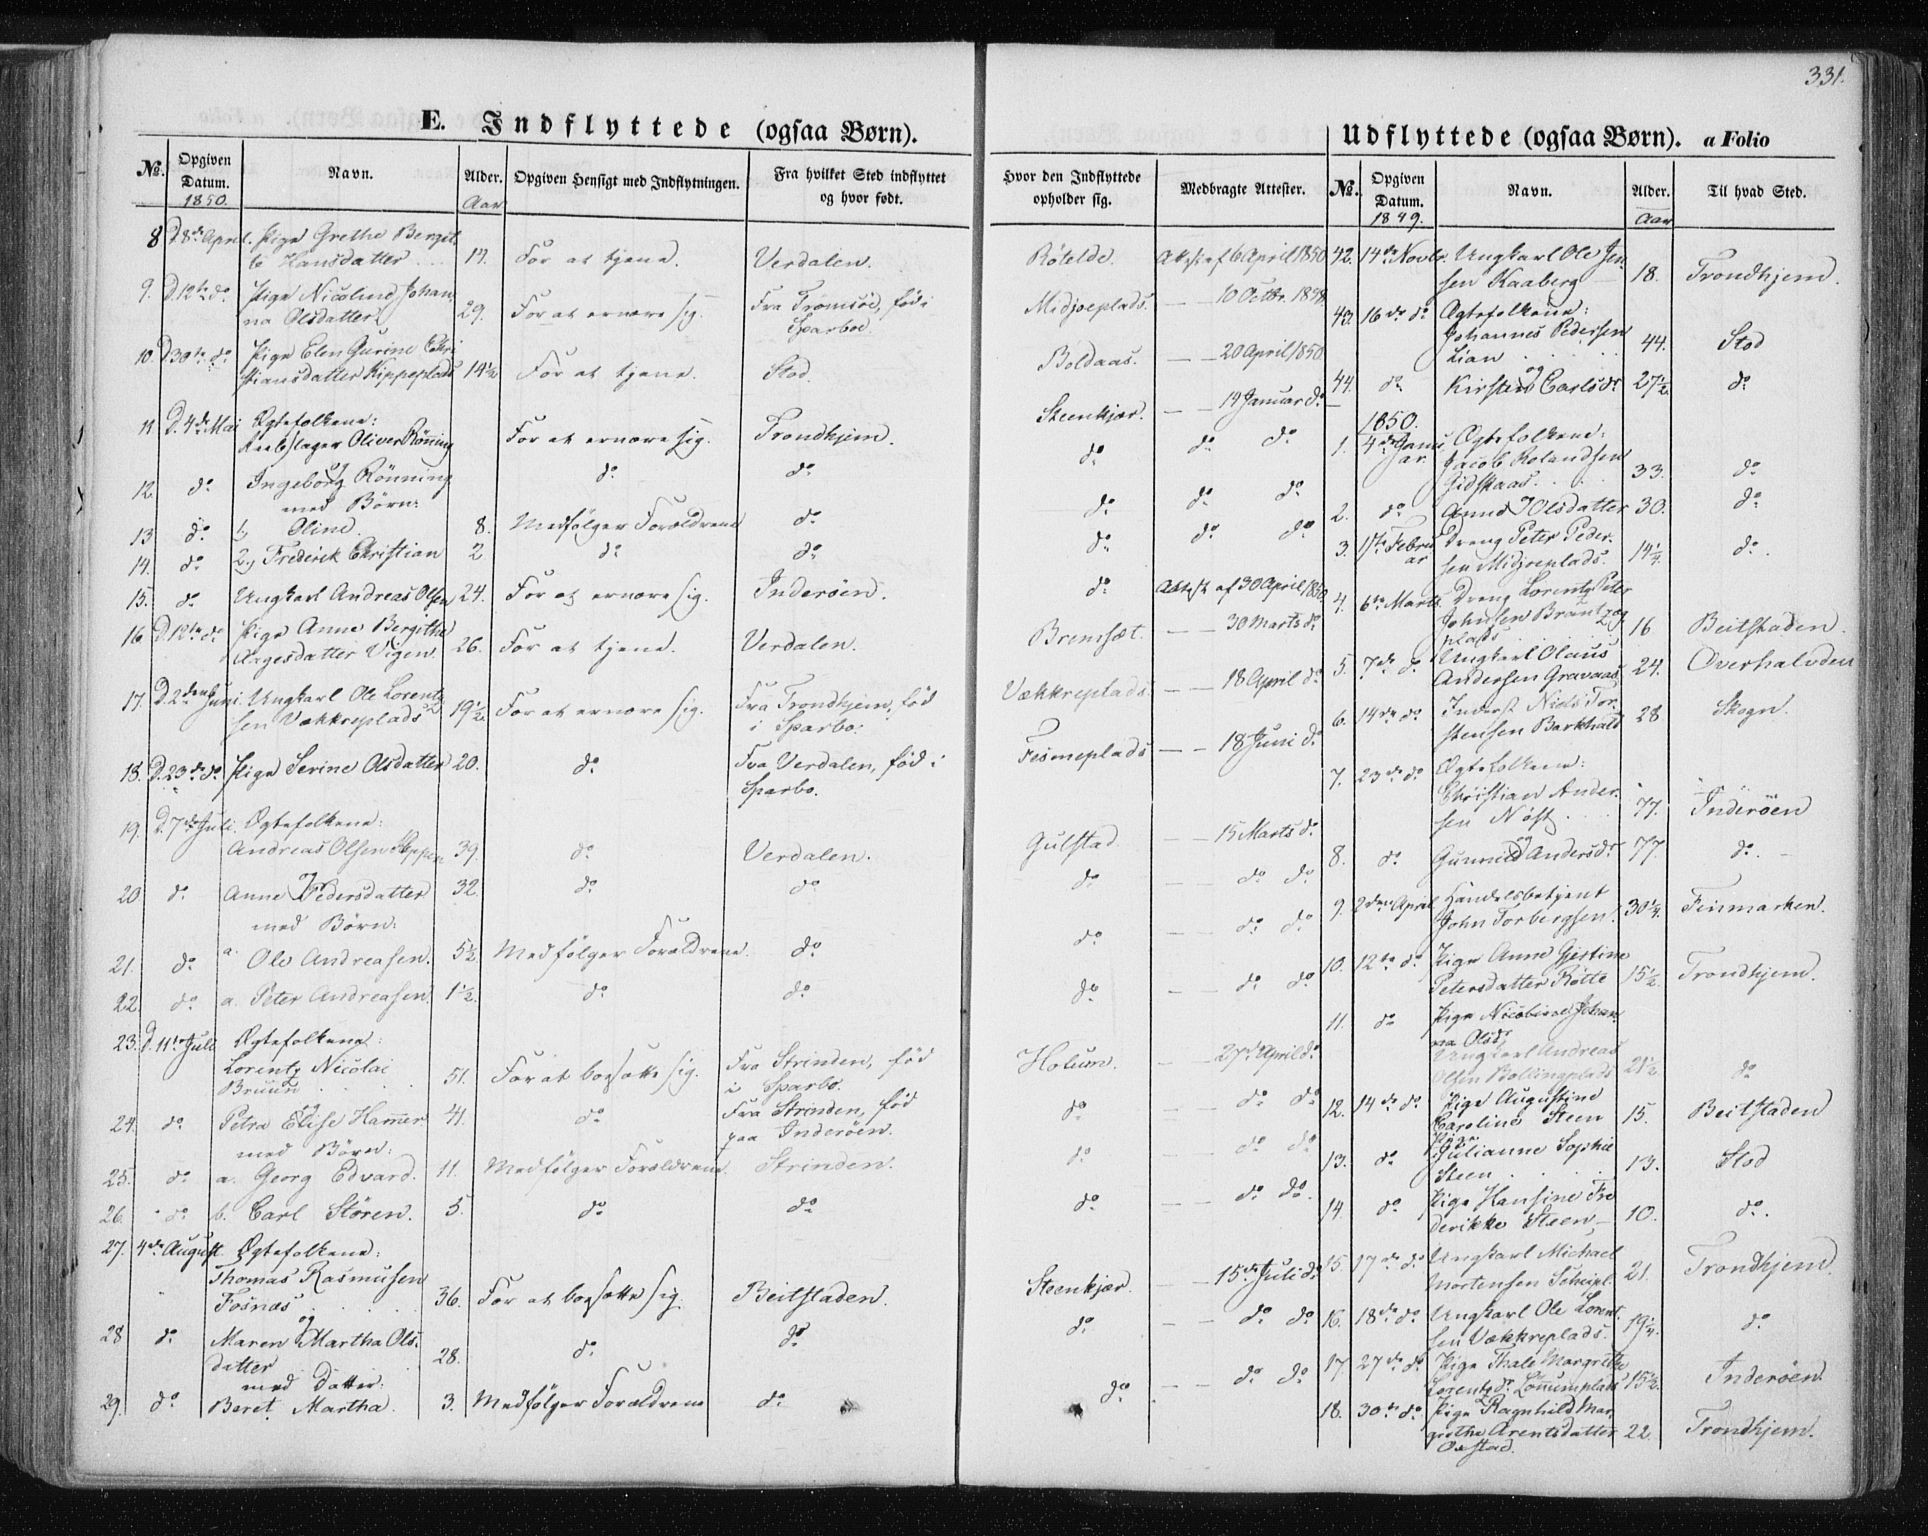 331.
E. Indflyttede (ogsaa Børn).
Udflyttede (ogsaa Børn). a Folio
No. Opgiven Datum. Navn. Alder. Opgiven Hensigt med Indflytningen. Fra hvilket Sted indflyttet og hvor født. Hvor den Indflyttede opholder sig. Medbragte Attester.
1850. Aar
8 D. 8de April. Pige Grethe Bergit-
te Hansdatter 17. For at tjene. Verdalen. Røtelde. Attest af 6 April 1850
9. D. 12te do Pige Nicoline Johan-
na Olsdatter 29. For at ernære sig. Fra Tromsøe, fød i
Sparboe. Midjoeplads. — — 10 Octbr. 1848
10. D. 30te do Pige Elen Gurine Chri-
stiansdatter Kippeplads 14½ For at tjene. Stod. Boldaas. — — 20 April 1850.
11 D. 4de Mai Ægtefolkene:
Reebslager Oliver Rönning For at ernære sig. Trondhjem. Steenkjær. — — 19 Januar do
og
12. do Ingeborg Rönning do do do do do
med Børn:
13. do 1, Oline. 8. Medfølger Forældrene do do do do
14. do 2, Frederik Christian 2 do do do do do
15. do Ungkarl Andreas Olsen 24. For at ernære sig. Inderøen. do Attest af 30 April 1850
16 D. 12te do Pige Anne Bergithe
Aagesdatter Vigen. 26. For at tjene. Verdalen. Bremsæt. — — 30 Marts do
17. D. 2den Juni. Ungkarl Ole Lorent-
sen Vækkreplads 19½ For at ernære sig. Fra Trondhjem, fød
i Sparbo. Vækkreplads. — — 18 April do
18. D. 23de do Pige Serine Olsdatter 20. do Fra Verdalen, fød i
Sparbo. Fesmeplads — — 18 Juni do
19. D. 7de Juli. Ægtefolkene:
Andreas Olsen 39. do Verdalen. Gulstad — — 15 Marts do
20 do Anne Pedersdatter 32. do do do — — do do
med Børn:
21. do a. Ole Andreasen. 5½ Medfølger Forældrene. do do — — do do
22. do a. Peter Andreasen. 1½. do do do — — do do
23. D. 11te Juli Ægtefolkene:
Lorentz Nicolai
Bruun 51. For at bosætte sig. Fra Strinden, fød
i Sparbo. Holum. — — 27de April do
og
24. do Petra Elise Hamer 41. do Fra Strinden, fød
paa Inderøen. do — — do do
med Børn:
25. do a. Georg Edvard. 11. Medfølger Forældrene Strinden. do — — do do
26. do b. Carl Støren. 5. do do do — — do do.
27. 4de August Ægtefolkene:
Thomas Rasmusen
Fosnæs 36. For at bosætte sig. Beitstaden. Steenkjær. — — 15de Juli do
og
28 do Maren Martha Ols-
datter 28. do do do — — do do
med Datter:
29. do Beret Martha. 3. Medfølger Forældrene do do — — do do
No. Opgiven Datum. Navn. Alder. Til hvad Sted.
1849. Aar
42. 14de Novbr. Ungkarl Ole Jen-
sen Kaaberg 18. Trondhjem.
43. 16de do Ægtefolkene:
Johannes Pedersen
Lian 44. Stod
og
44. do Kirsten Carlsdr 27½ do
1850.
1. 4de Janu-
ar. Ægtefolkene:
Jacob Rolandsen
Gidskaas 33. do
2. do Anne Olsdatter 30. do
3. 11te Febru-
ar Dreng Peter Peder-
sen Midjoeplads. 14¼ do.
4. 6te Marts Dreng Lorentz Peter
Johnsen
plads 16 Beitstaden.
5. 7de do Ungkarl Olaus
Andersen Gravaas 24. Overhalvden
6. 14de do Inderst Niels Tor-
stensen Barkhald 28 Skogn.
7. 23de do Ægtefolkene:
Christian Ander-
sen Nøst 77. Inderöen
og
8. do Gunnild Andersdr 77. do. —
9. 2den April Handelsbetjent
John Torbergsen. 30¼. Finmarken.
10. 12te do Pige Anne Gjertine
Petersdatter Røtte 15½ Trondhjem.
11. do Pige Nicoline Johan-
na Olsdr
Ungkarl Andreas
Olsen Bollingplads 21½ do
12. 14de do Pige Augustine
Caroline Steen 15. Beitstaden
13. do Pige
Julianne Sophie
Steen 13. Stod
14. do Pige Hansine Fre-
derikke Steen 10. do.
15. 17de do Ungkarl Michael
Mortensen 21. Trondhjem.
16. 18de do Ungkarl Ole Lorent-
sen Vækkreplads. 19¼. do
17. 27de do Pige Thale Margrethe
Lorentsdr 15½. Inderöen.
18. 30te do Pige Ragnhild Mar-
grethe Arentsdatter
Oxstad. 22. Trondhjem.